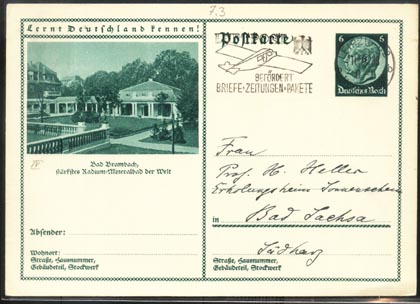 7.3
Lernt Deutschland kennen!
Postkarte
6 6
Deutsches Reich
BEFÖRDERT
BRIEFE·ZEITUNGEN·PAKETE
Bad Brambach,
stärkstes Radium-Mineralbad der Welt
Absender:
Wohnort:
Straße, Hausnummer,
Gebäudeteil, Stockwerk
Frau
Prof. H. Heller
Erholungsheim Sonnenschein
in Bad Sachsa
Südharz
Straße, Hausnummer,
Gebäudeteil, Stockwerk